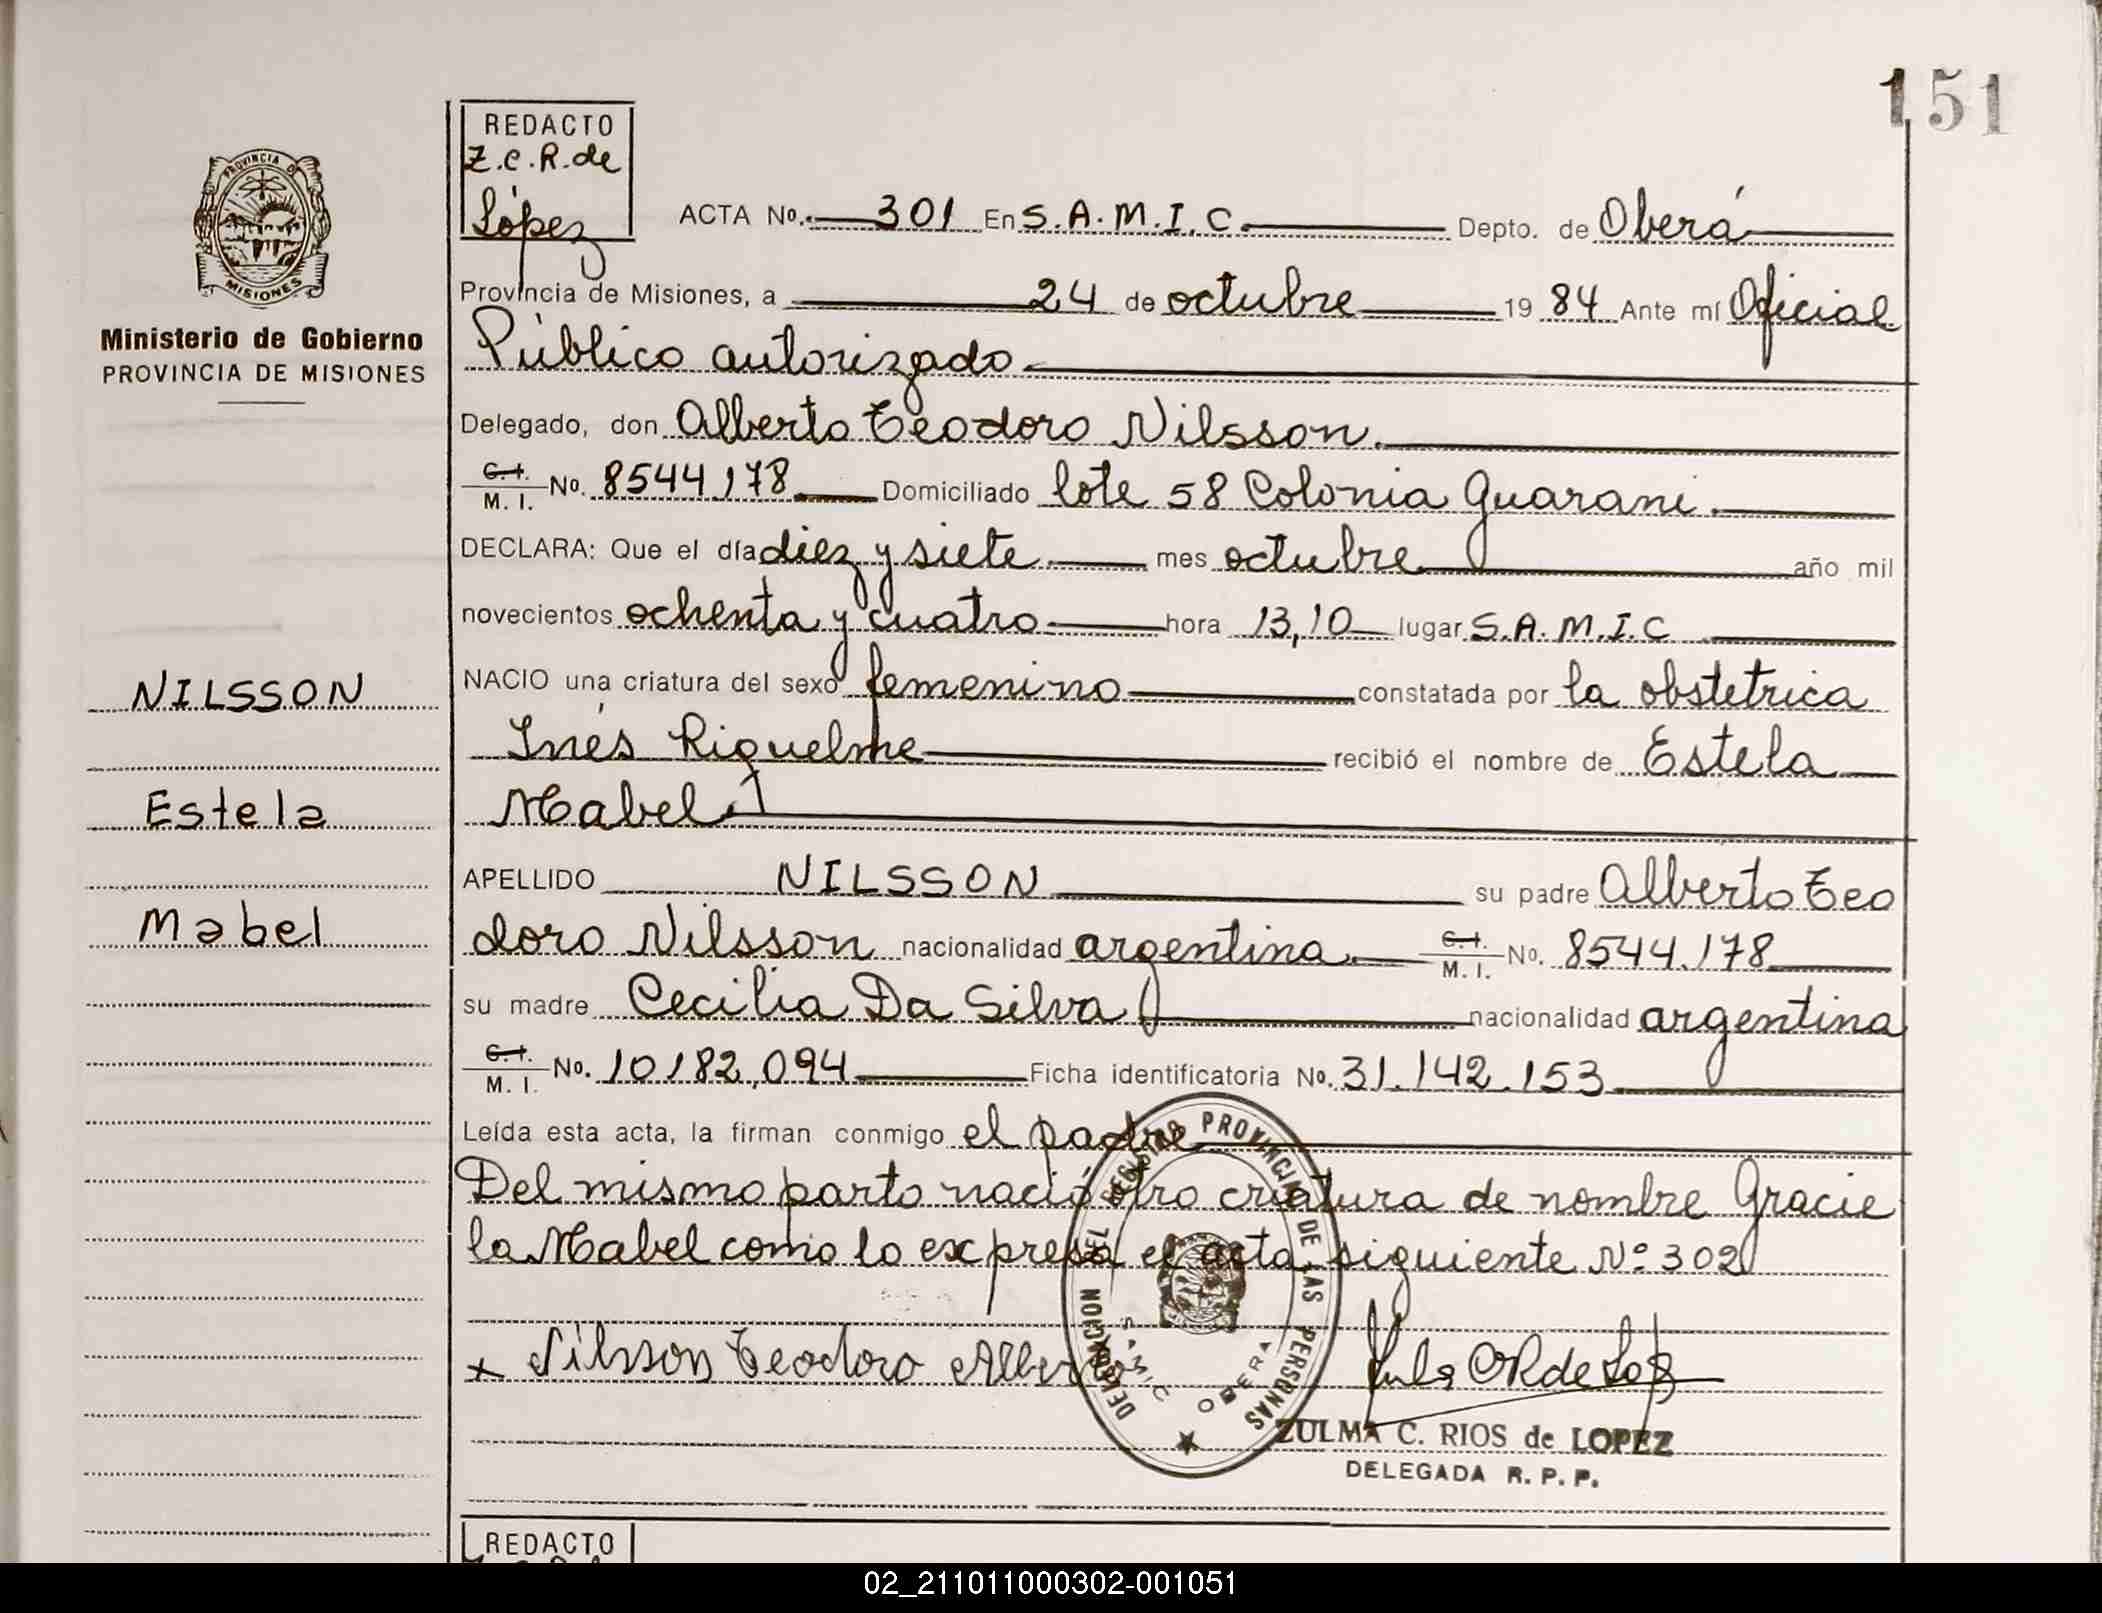 151
REDACTO
Z.C.R. de
López
PROVINCIA DE
MISIONES
Ministerio de Gobierno
PROVINCIA DE MISIONES
ACTA No. 301 En S.A.M.I.C. Depto. de Oberá
Provincia de Misiones, a 24 de octubre 19 84 Ante mí Oficial
Público autorizado
Delegado, don Alberto Teodoro Nilsson.
C.I. / M. I. No. 8544.178 Domiciliado lote 58 Colonia Guarani.
DECLARA: Que el día diez y siete mes octubre año mil
novecientos ochenta y cuatro hora 13,10 lugar S.A.M.I.C
NACIO una criatura del sexo femenino constatada por la obstetrica
Inés Riquelme recibió el nombre de Estela
Mabel
APELLIDO NILSSON su padre Alberto Teo
doro Nilsson nacionalidad argentina C.I. / M. I. No. 8544.178
su madre Cecilia Da Silva nacionalidad argentina
C.I. / M. I. No. 10182.094 Ficha identificatoria No. 31.142.153
Leída esta acta, la firman conmigo el padre
Del mismo parto nació otro criatura de nombre Gracie
la Mabel como lo expresa el acta siguiente Nº 302
NILSSON
Estela
Mabel
x Nilsson Teodoro Alberto
DELEGACION DEL REGISTRO PROVINCIAL DE LAS PERSONAS
SAMIC OBERA
ZULMA C. RIOS de LOPEZ
DELEGADA R. P. P.
REDACTO
02_211011000302-001051